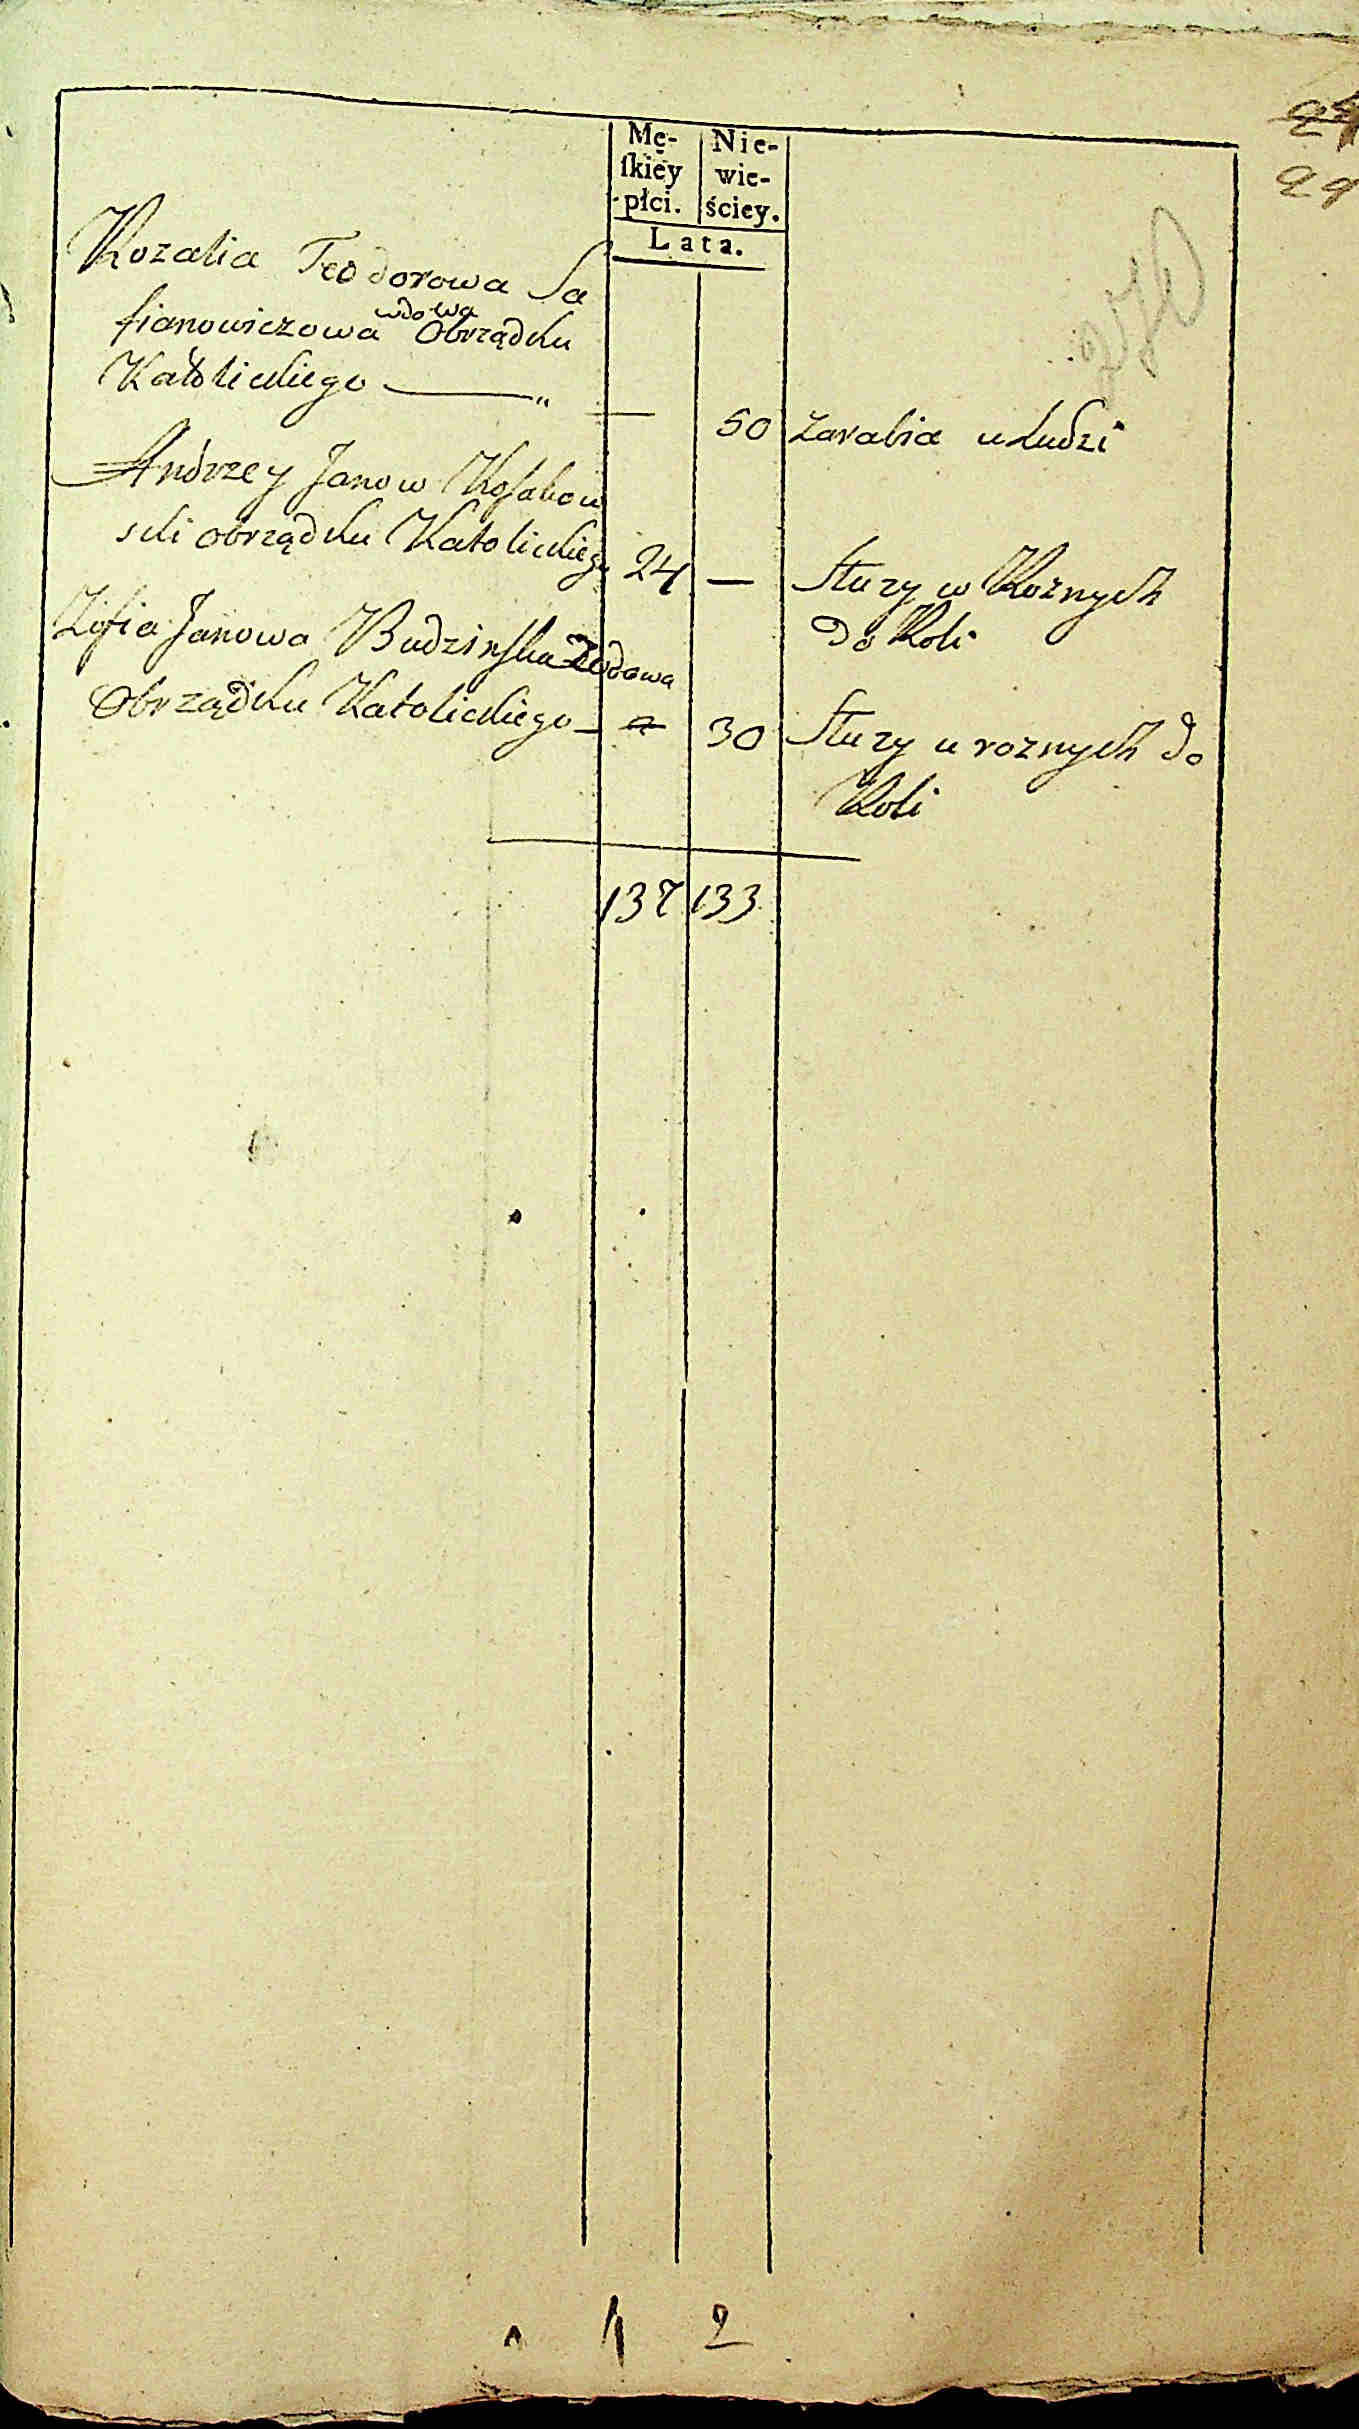 29
Mę- Nie-
ſkiey wie-
płci. ściey.
Lata.
Rozalia Teodorowa Sa
fianowiczowa wdowa Obrządku
Katolickiego — „ — 50 Zarabia u Ludzi
Andrzey Janow Kosakow
ski obrządku Katolickiego 24 — Służy w Roznych
do Roli
Zofia Janowa Budzinska Wdowa
Obrządku Katolickiego — 30 Służy u roznych do
Roli
137 133
1 2